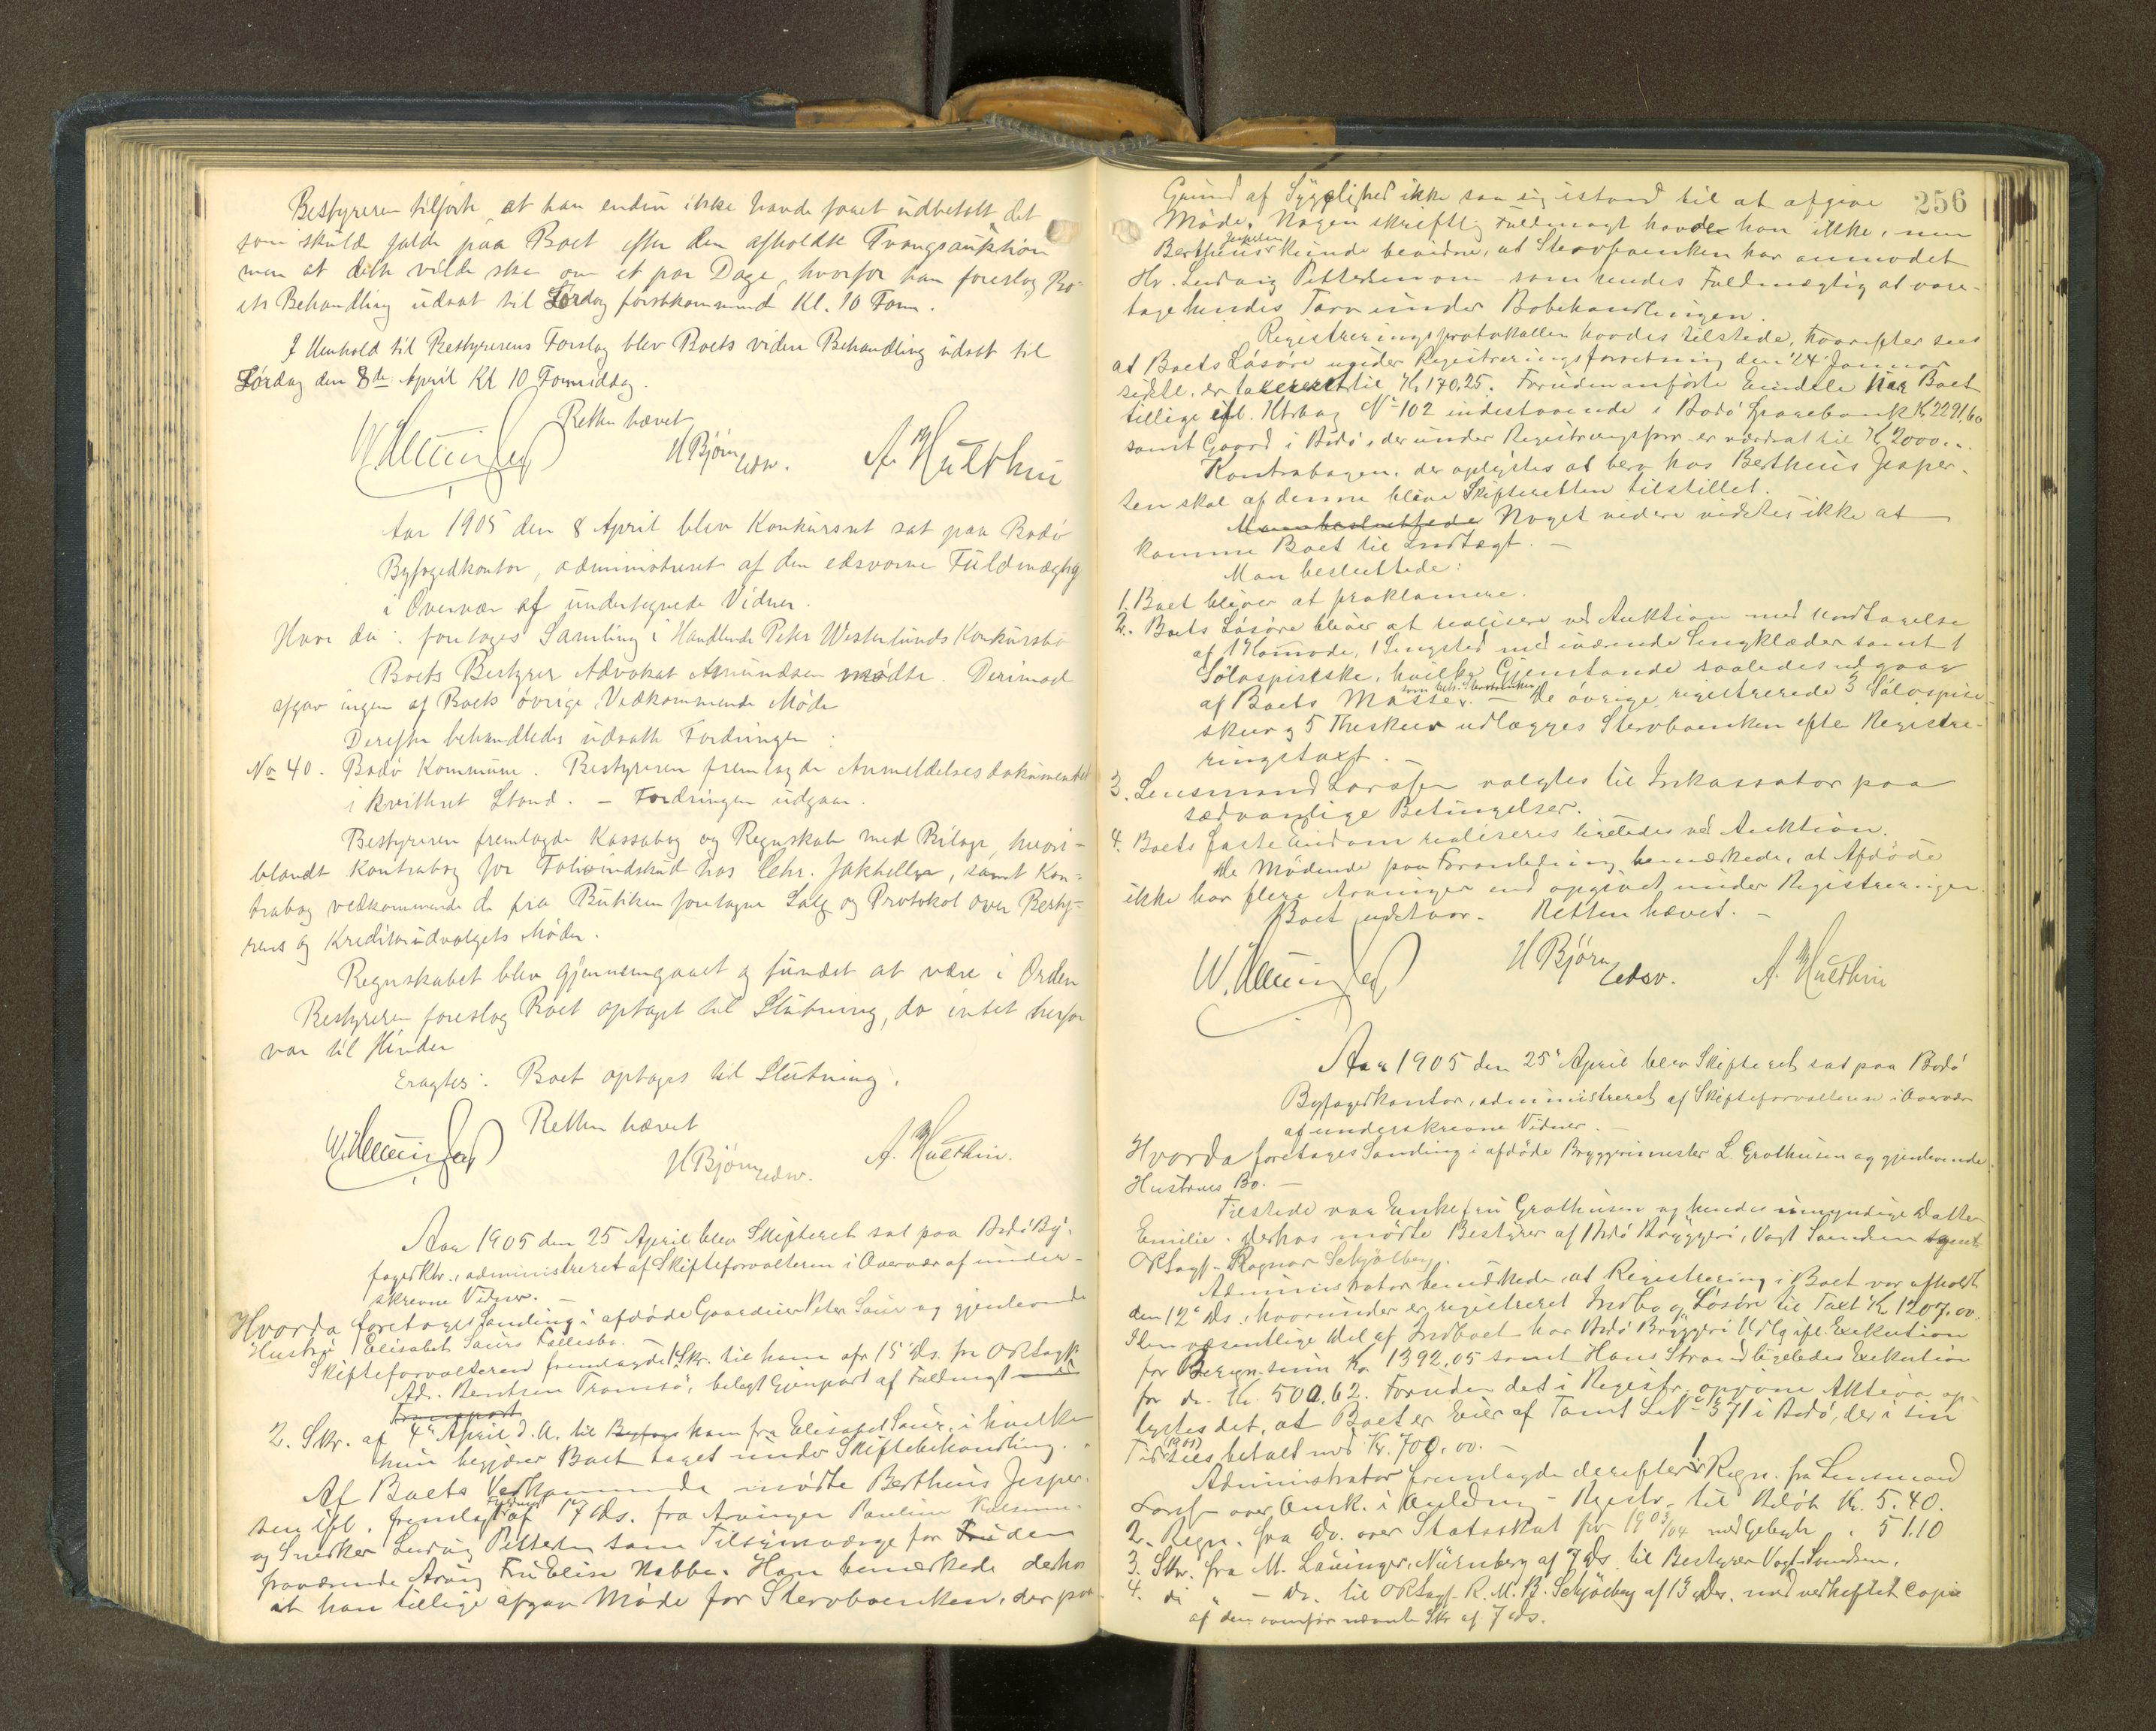 Bestyreren tilførte at han endnu ikke havde faaet udbetalt det
som skulde falde paa Boet efter den afholdte Tvangsauktion
men at dette vilde ske om et par Dage, hvorfor han foreslog Bo-
ets Behandling udsat til Lørdag førstkommende Kl. 10 Form.
I Henhold til Bestyrerens Forslag blev Boets videre Behandling udsat til
Lørdag den 8de April Kl 10 Formiddag.
Retten hævet
H Bjørn edsv. A. Hulthin
Aar 1905 den 8 April blev Konkursret sat paa Bodø
Byfogedkontor, administreret af den edsvorne Fuldmægtig
i Overvær af undertegnede Vidner.
Hvor da: foretoges Samling i Handlende Peter Westerlunds Konkursbo
Boets Bestyrer Advokat Amundsen mødte. Derimod
afgav ingen af Boets øvrige Vedkommende Møde
Derefter behandledes udsatte Fordringer:
No 40. Bodø Kommune. Bestyreren fremlagde Anmeldelsesdokumentet
i kvitteret Stand. - Fordringen udgaar.
Bestyreren fremlagde Kassabog og Regnskab med Bilage, hvori-
blandt Kontrabog for Folioindskud hos Chr. Jakhelln, samt Kon-
trabog vedkommende de fra Butiken foretagne Salg og Protokol over Besty-
rens og Kreditorudvalgets Møder.
Regnskabet blev gjennemgaaet og fundet at være i Orden
Bestyreren foreslog Boet optaget til Slutning, da intet herfor
var til Hinder
Eragtes: Boet optages til Slutning.
Retten hævet
H Bjørn edsv. A. Hulthin.
Aar 1905 den 25 April blev Skifteret sat paa Bodø By-
fogedktr., administreret af Skifteforvalteren i Overvær af under-
skrevne Vidner. -
Hvorda foretoges Samling i afdøde Gaardeier Peter Saur og gjenlevende
Hustru Elisabet Saurs Fællesbo.
Skifteforvalteren fremlagde 1 Skr. til ham af 15 ds. fra ORSagf.
Ad. Bentsen Tromsø, belagt Gjenpart af Fuldmagt
2. Skr. af 4de April d. A. til ham fra Elisabet Saur, i hvilke
hun begjærer Boet taget under Skiftebehandling.
Af Boets Vedkommende mødte Bertheus Jesper-
sen ifl. fremlagt Fuldmagt af 17 ds. fra Arvinger Pauline
og Snedker Ludvig Pettersen som Tilsynsværge for den
fraværende Arving Fru Elise Nabbe. Han bemærkede derhos
at han tillige afgav Møde for Stervboenken, der paa
256
Grund af Sygelighed ikke saa sig istand til at afgive
Møde. Nogen skriftlig Fuldmagt havde han ikke, men
Berthens Jespersen kunde bevidne, at Stervboenken har anmodet
Hr. Ludvig Pettersen om som hendes Fuldmægtig at vare-
tage hendes Tarv under Bobehandlingen.
Registreringsprotokollen havdes tilstede, hvorefter sees
at Boets Løsøre under Registreringsforretning den 24 Januar
sidste, er taxeret til Kr 170,25. Foruden anførte Eiendele har Boet
tillige ifl. Ktrbog No 102 indestaaende i Bodø Sparebank Kr 2291,60
samt Gaard i Bodø, der under Registreringsforr. er værdsat til Kr 2000..
Kontrabogen, der oplystes at bero hos Bertheus Jesper-
sen skal af denne blive Skifteretten tilstillet.
Man besluttede Noget videre vidstes ikke at
komme Boet til Indtægt. -
Man besluttede:
1. Boet bliver at proklamere.
2. Boets Løsøre bliver at realisere ved Auktion med Undtagelse
af 1 Komode, 1 Sengsted med iværende Sengklæder samt 1
Sølvspiseske, hvilke Gjenstande saaledes udgaar
af Boets Masse. - De øvrige registrerede 3 Sølvspise-
skeer og 5 Theskeer udlægges Stervboenken efter Registre-
ringstaxt. -
3. Lensmand Larssen valgtes til Inkassator paa
sædvanlige Betingelser.
4. Boets faste Eiendom realiseres ligeledes ved Auktion.
De Mødende paa Foranledning bemærkede, at Afdøde
ikke har flere Arvinger end opgivet under Registreringen.
Boet udstaar. Retten hævet. -
H Bjørn edsv. A. Hulthin
Aar 1905 den 25de April blev Skifteret sat paa Bodø
Byfogedkontor, administreret af Skifteforvalteren i Overvær
af underskrevne Vidner. -
Hvorda foretoges Samling i afdøde Bryggerimester L. Grothusen og gjenlevende
Hustrues Bo. -
Tilstede var Enkefru Grothusen og hendes umyndige Datter
Emilie. Derhos mødte Bestyrer af Bodø Bryggeri, Vogt Svendsen samt
ORSagf. Ragnar Schjølberg.
Administrator bemærkede, at Registrering i Boet var afholdt
den 12te ds., hvorunder er registreret Indbo og Løsøre til Taxt Kr 1207.00.
I den væsentlige Del af Indboet har Bodø Bryggeri Udlg ifl. Exekution
for Kr. 1392,05 samt Hans Strand ligeledes Exekution
for do. Kr. 500.62. Foruden det i Registr. opgivne Aktiva op-
lystes det, at Boet er Eier af Tomt L No 371 i Bodø, der i sin
Tid (1901) sees betalt med Kr. 700,00. -
Administrator fremlagde derefter 1 Regn. fra Lensmand
Larss. over Omk. i Anledng. Registr. til Beløb Kr. 5.40.
2. Regn. fra Do. over Statsskat for 1903/04 med Gebyr " 51.10
3. Skr. fra M. Lauinger, Nürnberg af 7 ds. til Bestyrer Vogt Svendsen.
4. do " - Do. til ORSagf. R. M. B. Schjølberg af 13 ds. med vedheftet Copie
af den ovenfor nævnte Skr af 7 ds.